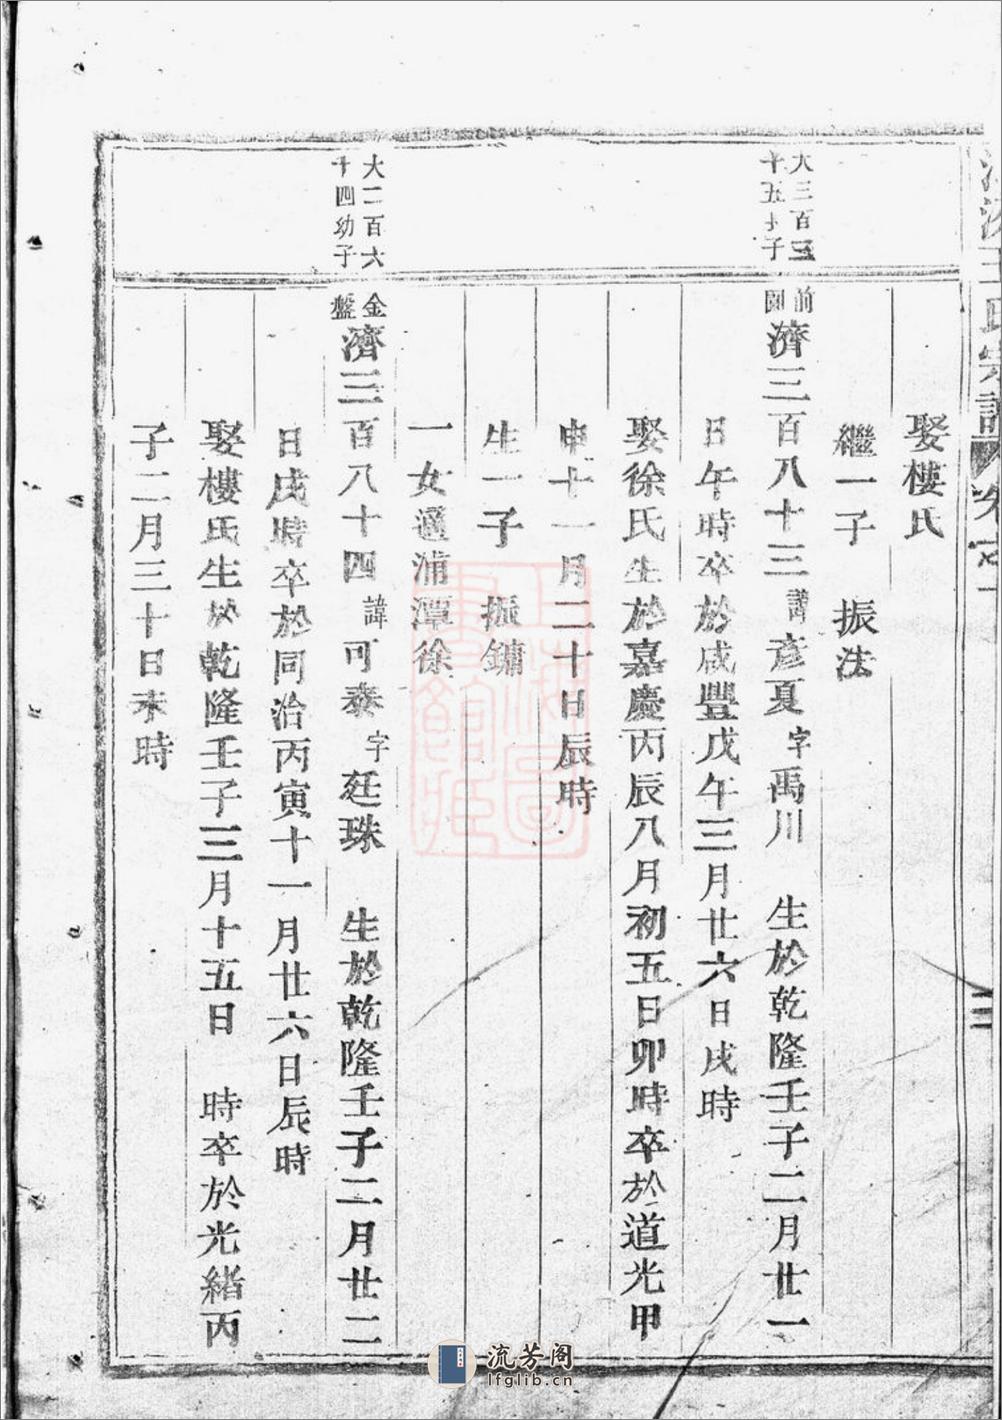 王氏宗譜
娶樓氏
繼一子 振法
大三百三
十五長子
前
園
濟三百八十三諱彥夏字禹川 生於乾隆壬子二月廿一
日午時卒於咸豐戊午三月廿六日戌時
娶徐氏生於嘉慶丙辰八月初五日卯時卒於道光甲
申十一月二十日辰時
生一子 振鏞
一女適浦潭徐
大二百六
十四幼子
金
盤
濟三百八十四諱可泰字廷珠 生於乾隆壬子二月廿二
日戌時卒於同治丙寅十一月廿六日辰時
娶樓氏生於乾隆壬子三月十五日 時卒於光緒丙
子二月三十日未時
流芳阁
lfglib.cn